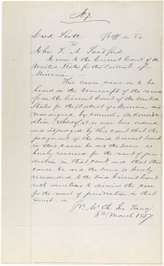 Dred Scott
vs
John F. A. Sandford
In error to the Circuit Court of the
United States for the District of
Missouri
This cause came on to be
heard on the transcript of the record
from the Circuit Court of the United
States for the District of Missouri and
was argued by counsel, on consideration
whereof it is now here ordered
and adjudged by this court that the
judgment of the said Circuit Court
in this cause be and the same is
hereby reversed for the want of juris
diction in that court and that this
cause be and the same is hereby
remanded to the said Circuit Court
with directions to dismiss the case
for the want of jurisdiction in that
court.
Mr. Ch. Jus. Taney
6th March 1857